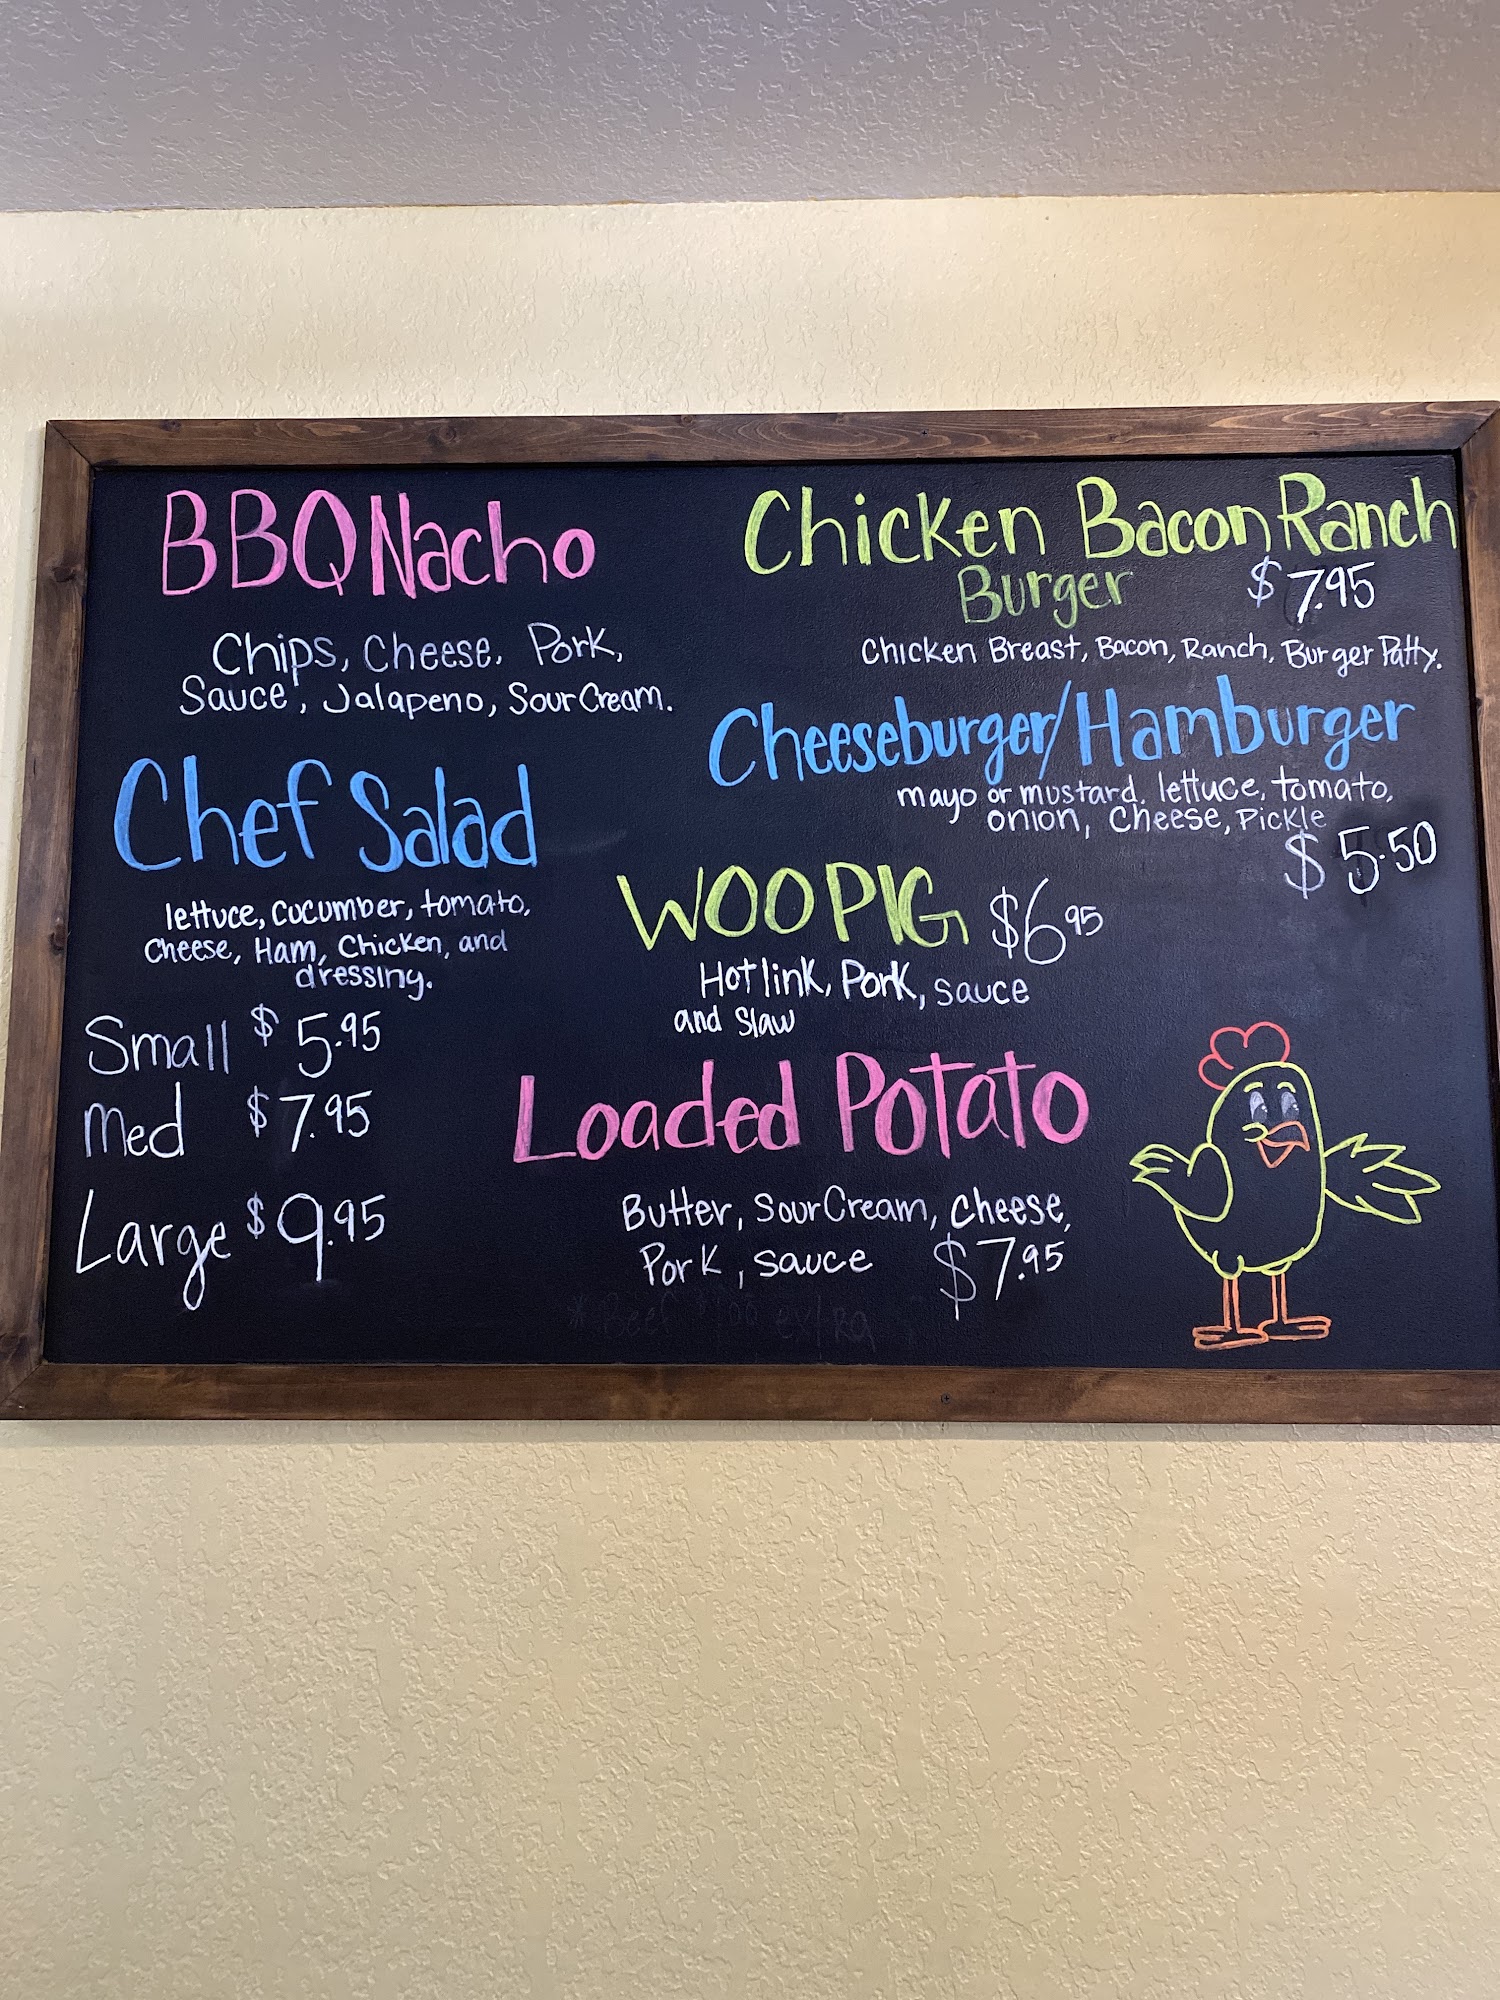 BBQ Nacho
Chips, Cheese, Pork,
Sauce, Jalapeno, Sour Cream.
Chef Salad
lettuce, cucumber, tomato,
Cheese, Ham, Chicken, and
dressing.
Small $5.95
Med $7.95
Large $9.95
Chicken Bacon Ranch
Burger $7.95
Chicken Breast, Bacon, Ranch, Burger Patty.
Cheeseburger/Hamburger
mayo or mustard, lettuce, tomato,
onion, Cheese, Pickle
$5.50
WOO PIG $6.95
Hot link, Pork, sauce
and Slaw
Loaded Potato
Butter, Sour Cream, Cheese,
Pork, sauce $7.95
* Beef extra